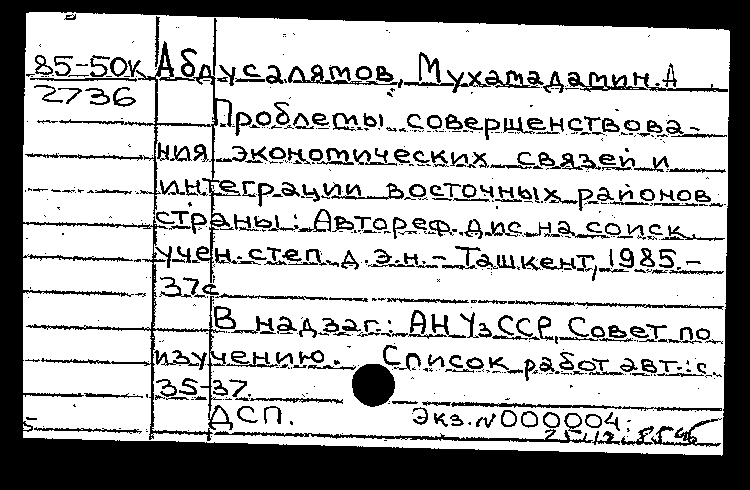 85-50к Абдусалямов, Мухамадамин.А
2736
Проблемы совершенствова-
ния экономических связей и
интеграции восточных районов
страны: Автореф. дис. на соиск.
учен. степ. д.э.н. – Ташкент, 1985. –
37с.
В надзаг.: АН УзССР, Совет по
изучению. Список работ авт.: с.
35-37.
ДСП. Экз. №000004.